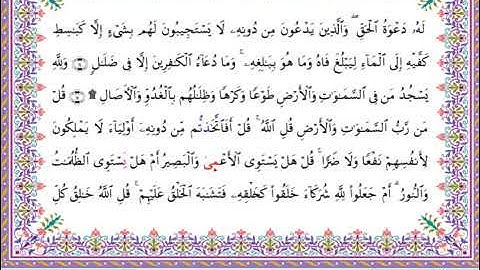 لَهُۥ دَعْوَةُ ٱلْحَقِّ ۖ وَٱلَّذِينَ يَدْعُونَ مِن دُونِهِۦ لَا يَسْتَجِيبُونَ لَهُم بِشَىْءٍ إِلَّا كَبَٰسِطِ
كَفَّيْهِ إِلَى ٱلْمَآءِ لِيَبْلُغَ فَاهُ وَمَا هُوَ بِبَٰلِغِهِۦ ۚ وَمَا دُعَآءُ ٱلْكَٰفِرِينَ إِلَّا فِى ضَلَٰلٍ ۝ وَلِلَّهِ
يَسْجُدُ مَن فِى ٱلسَّمَٰوَٰتِ وَٱلْأَرْضِ طَوْعًا وَكَرْهًا وَظِلَٰلُهُم بِٱلْغُدُوِّ وَٱلْءَاصَالِ ۩ ۝ قُلْ
مَن رَّبُّ ٱلسَّمَٰوَٰتِ وَٱلْأَرْضِ قُلِ ٱللَّهُ ۚ قُلْ أَفَٱتَّخَذْتُم مِّن دُونِهِۦٓ أَوْلِيَآءَ لَا يَمْلِكُونَ
لِأَنفُسِهِمْ نَفْعًا وَلَا ضَرًّا ۚ قُلْ هَلْ يَسْتَوِى ٱلْأَعْمَىٰ وَٱلْبَصِيرُ أَمْ هَلْ تَسْتَوِى ٱلظُّلُمَٰتُ
وَٱلنُّورُ ۗ أَمْ جَعَلُوا۟ لِلَّهِ شُرَكَآءَ خَلَقُوا۟ كَخَلْقِهِۦ فَتَشَٰبَهَ ٱلْخَلْقُ عَلَيْهِمْ ۚ قُلِ ٱللَّهُ خَٰلِقُ كُلِّ